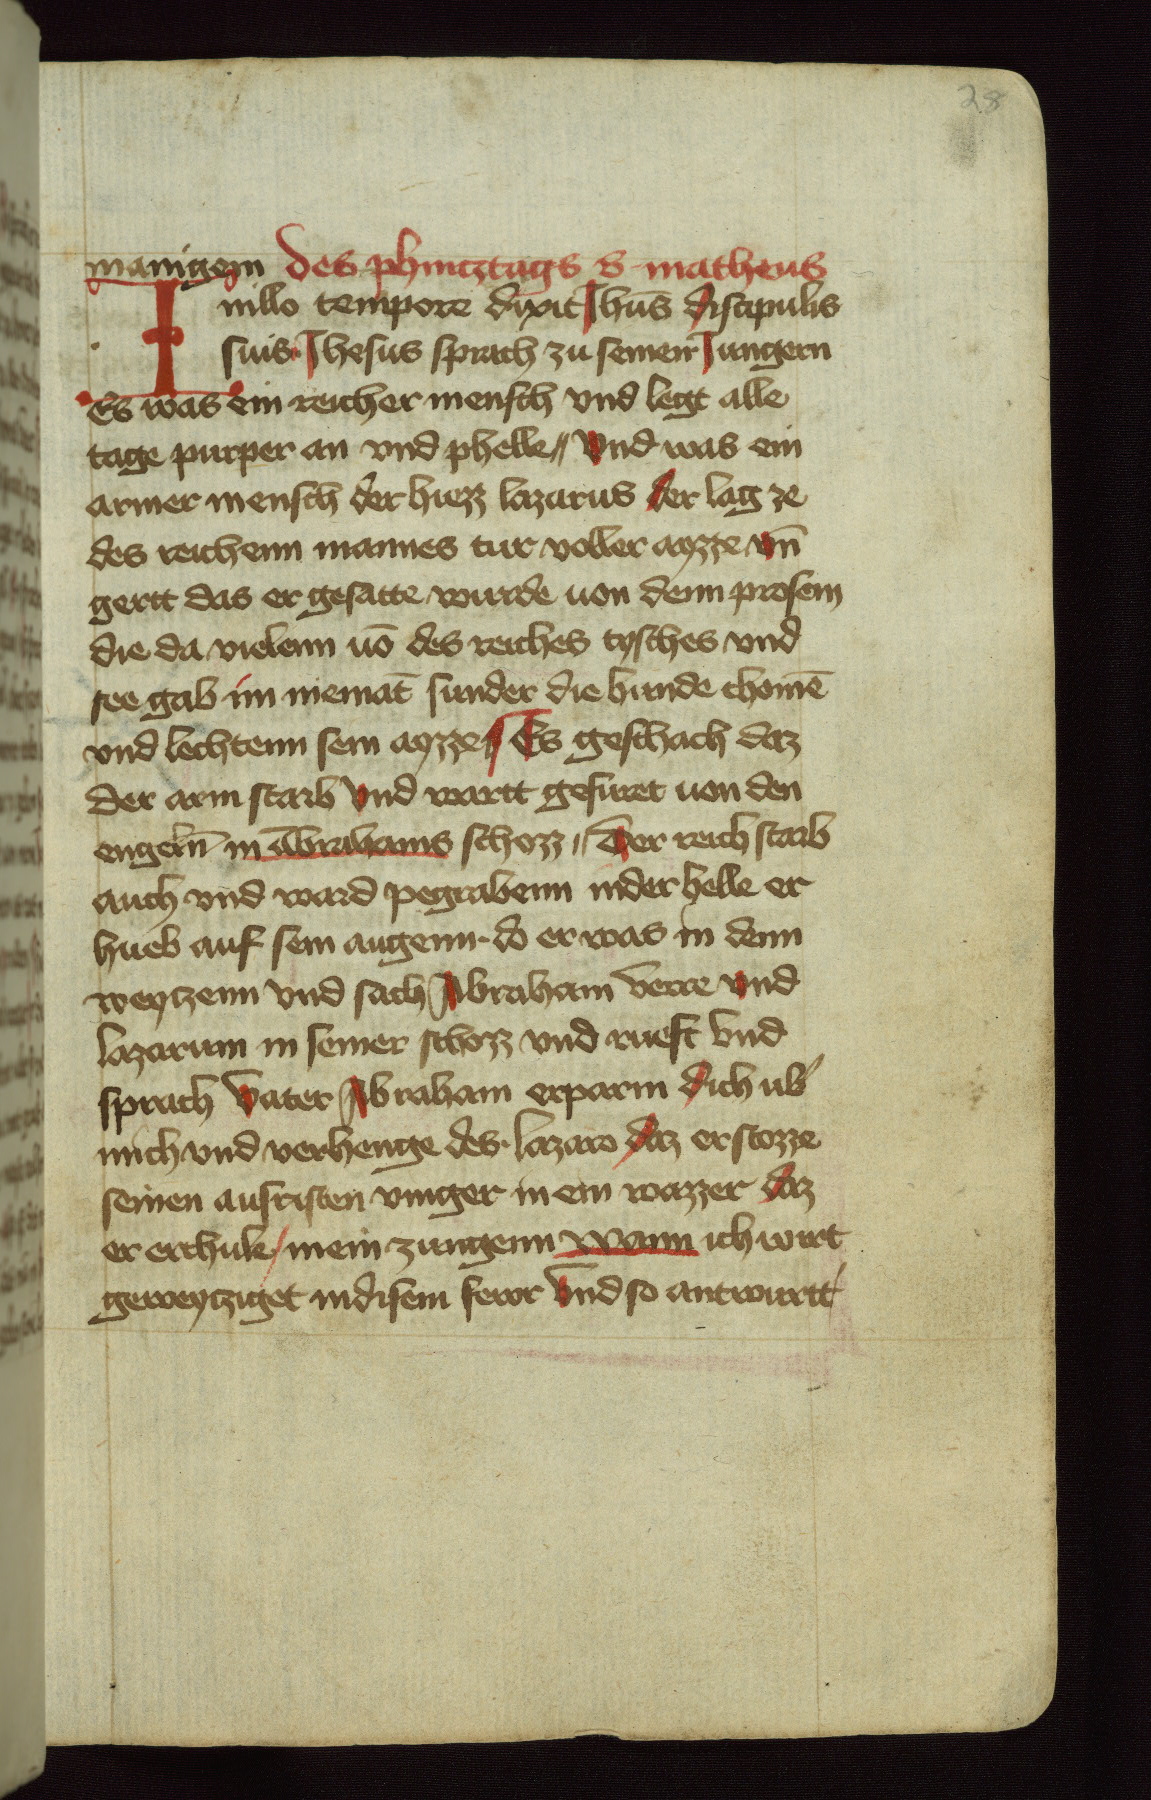 28
manigem des phincztags S matheus
Inillo tempore dixit Jhūs discipulis
suis Jhesus sprach zu seinen Jungern
Es was ein reicher mensch vnd legt alle
tage purper an vnd phelle // Vnd was ein
armer mensch der hiezz lazarus der lag ze
des reichenn mannes tur voller ayzze vn̄
gertt das er gesatte wurde uon denn prosem
die da vielenn uō des reiches tysches vnd
see gab im niemāt sunder die hunde chomē
vnd lechtenn sein ayzze // Es geschach daz
der arm starb Vnd wartt gefuret uon den
engeln̄ in Abrahams schozz // Der reich starb
auch vnd ward pegrabenn inder helle er
hueb auf sein augenn do er was in denn
weytzenn vnd sach Abraham verre vnd
lazarum in seiner schozz vnd rueft vnd
sprach Vater Abraham erparm dich ub'
mich vnd verhenge des lazaro daz er stozze
seinen ausristen vinger in ein wazzer daz
er erchule / mein zungenn Wann ich wirt
geweytziget indisem fewr Vnd so antwurtt'